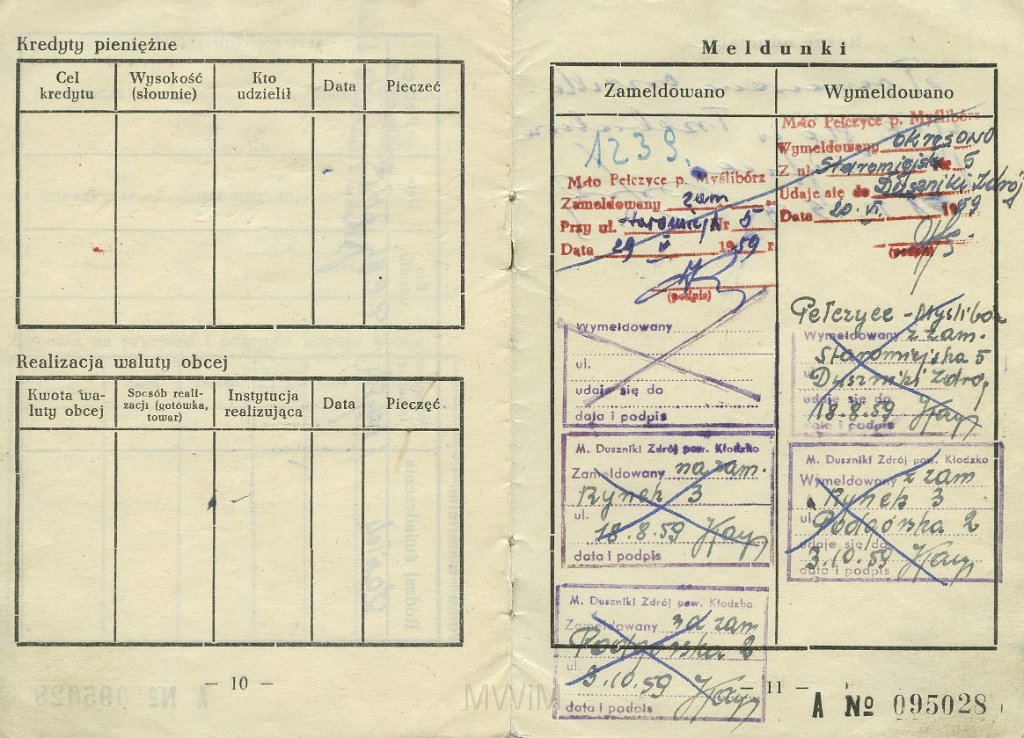 Kredyty pieniężne
Cel kredytu
Wysokość (słownie)
Kto udzielił
Data
Pieczeć
Realizacja waluty obcej
Kwota waluty obcej
Sposób realizacji (gotówka, towar)
Instytucja realizująca
Data
Pieczęć
— 10 —
Meldunki
Zameldowano
Wymeldowano
1239.
M-to Pełczyce p. Myślibórz
Zameldowany zam
Przy ul. Staromiejs Nr 5
Data 29 V 1959 r.
(podpis)
M-to Pełczyce p. Myślibórz
Wymeldowany okresowo
Z ul. Staromiejsk Nr 5
Udaje się do Duszniki Zdrój
Data 20 VI. 1959
(podpis)
Wymeldowany
ul.
udaje się do
data i podpis
Pełczyce - Myślibórz
Wymeldowany z zam.
Staromiejska 5
Duszniki Zdrój
udaje się do
18.8.59
M. Duszniki Zdrój pow. Kłodzko
Zameldowany na zam.
Rynek 3
ul.
18.8.59
data i podpis
M. Duszniki Zdrój pow. Kłodzko
Wymeldowany z zam
Rynek 3
ul. Podgórska 2
udaje się do
3.10.59
data i podpis
M. Duszniki Zdrój pow. Kłodzko
Zameldowany na zam
Podgórska 2
ul.
3.10.59
data i podpis
— 11 —
A № 095028
A № 095028
MWiM